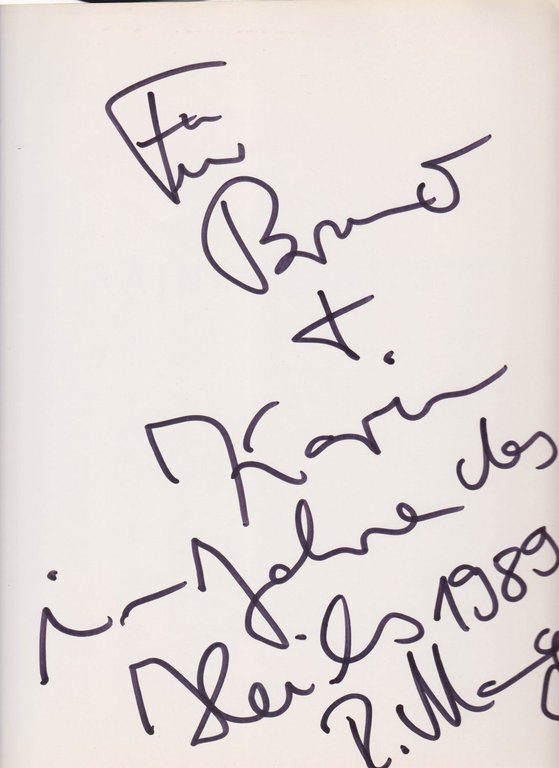 Für
Bruno
+
Karin
im Jahre des
Heils 1989
R.